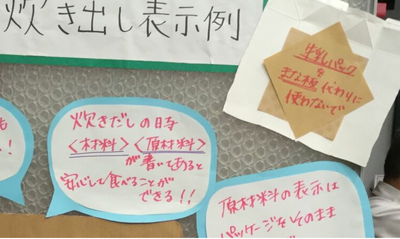 炊き出し表示例
牛乳パック
を
まな板代わりに
使わないで
も
!
炊きだしの時
<材料><原材料>
が書いてあると
安心して食べることが
できる!!
原材料の表示は
パッケージをそのまま